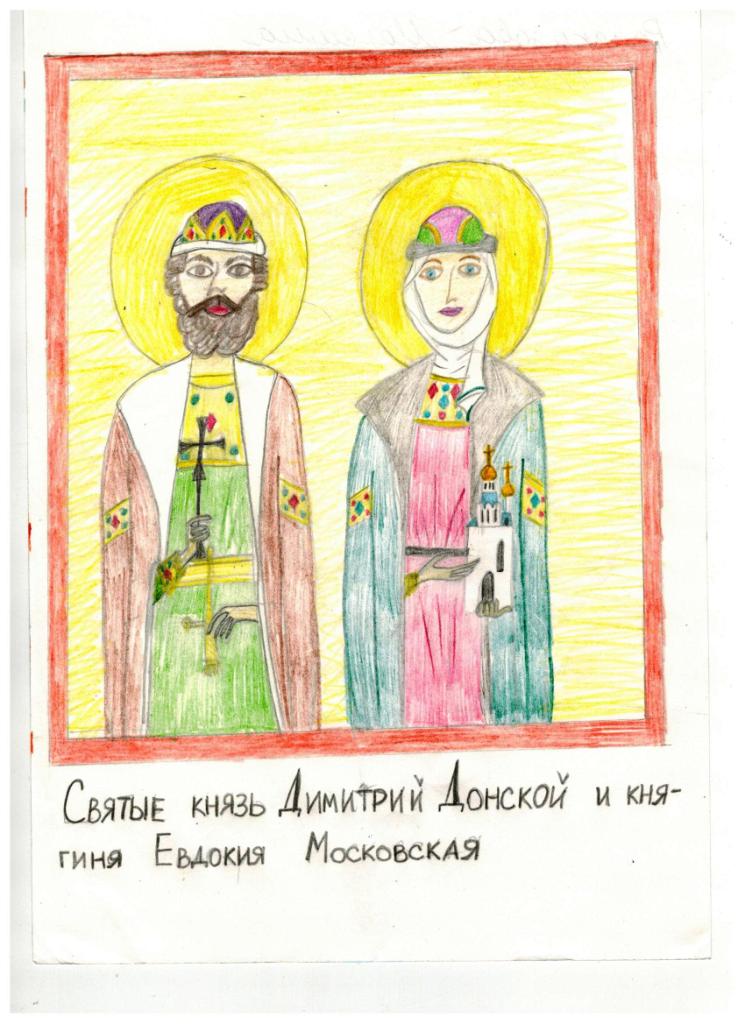 Святые князь Димитрий Донской и кня-
гиня Евдокия Московская